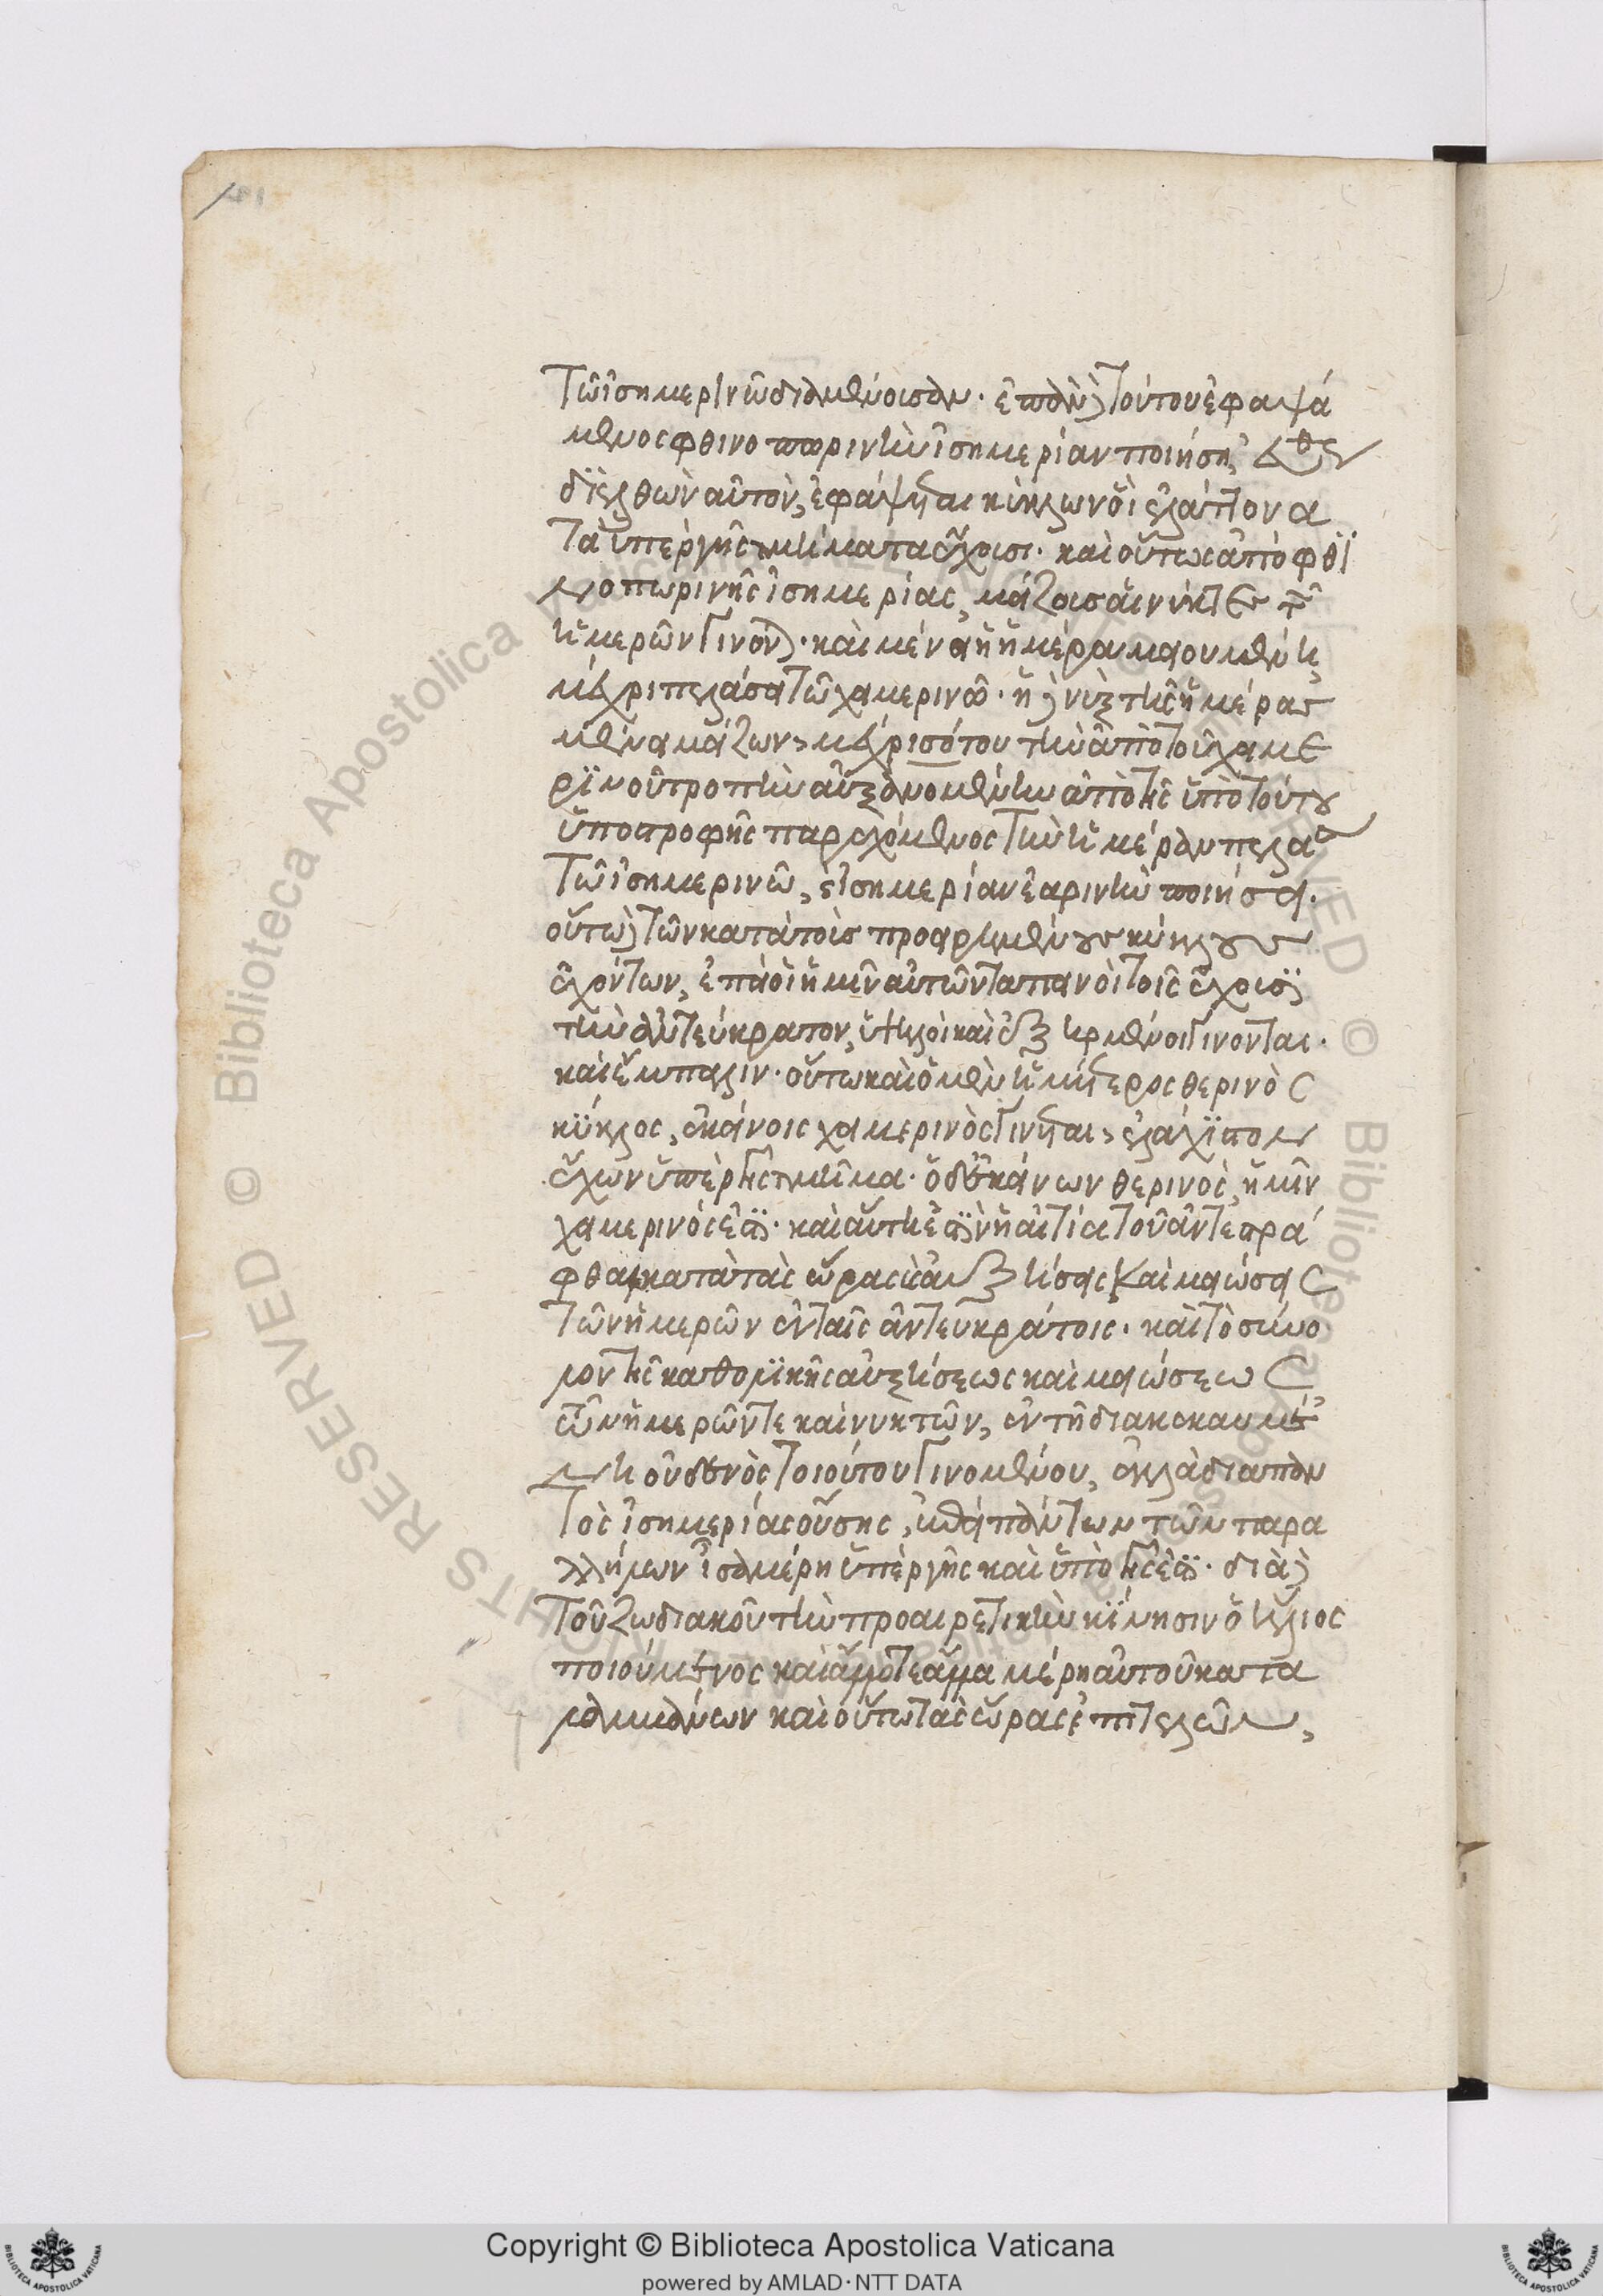 τῶ ἰσημερινῶ διαμένουσαν. ἐπὰν δὲ τούτου ἐφαψά
μενος φθινοπωρινὴν ἰσημερίαν ποιήση,
διελθὼν αὐτὸν, ἐφάψηται κύκλων οἳ ἐλάττονα
τὰ ὑπὲρ γῆς τμήματα ἔχουσι. καὶ οὕτως ἀπὸ φθι
νοπωρινῆς ἰσημερίας, μείζους αἱ νύκτες τῶν
ἡμερῶν γίνονται. καὶ μένει ἡ ἡμέρα μειουμένη,
μέχρι πελάσει τῶ χειμερινῶ. ἡ δὲ νὺξ τῆς ἡμέρας
μένει μείζων, μέχρις ὅτου τὴν ἀπὸ τοῦ χειμε
ρινοῦ τροπὴν αὐξανομένην ἀπὸ τῆς ὑπὸ τούτου
ὑποστροφῆς παρερχόμενος τὴν ἡμέραν πελάσει
τῶ ἰσημερινῶ, καὶ ἰσημερίαν ἐαρινὴν ποιήσει.
οὕτω δὲ τῶν κατὰ τοὺς προειρημένους κύκλους
ἐχόντων, ἐπεὶ οἱ ἡμῖν αὐτῶν ταπεινοὶ τοῖς ἔχουσι
τὴν ἀντεύκρατον, ὑψηλοὶ καὶ ἐξηρμένοι γίνονται.
καὶ ἔμπαλιν. οὕτω καὶ ὁ μὲν ἡμέτερος θερινὸς
κύκλος, ἐκείνοις χειμερινὸς γίνεται, ἐλάχιστον
ἔχων ὑπὲρ γῆς τμῆμα. ὁ δ' ἐκείνων θερινὸς, ἡμῖν
χειμερινός ἐστι. καὶ αὕτη ἐστὶν ἡ αἰτία τοῦ ἀντεστρά
φθαι κατὰ τὰς ὥρας καὶ αὐξήσεις καὶ μειώσεις
τῶν ἡμερῶν ἐν ταῖς ἀντευκράτοις. καὶ τὸ σύνο
λον τῆς καθολικῆς αὐξήσεως καὶ μειώσεως
τῶν ἡμερῶν τε καὶ νυκτῶν, ἐν τῆ διακεκαυμέ
νη οὐδενὸς τοιούτου γινομένου, ἀλλὰ διαπαν
τὸς ἰσημερίας οὔσης, ἐπεὶ πάντων τῶν παρα
λλήλων ἴσα μέρη ὑπὲρ γῆς καὶ ὑπὸ γῆς ἐστι. διὰ δὲ
τοῦ ζωδιακοῦ τὴν προαιρετικὴν κίνησιν ὁ ἥλιος
ποιούμενος καὶ ἄλλοτε ἄλλα μέρη αὐτοῦ κατα
λαμβάνων καὶ οὕτω τὰς ὥρας ἐπιτελῶν,
Copyright © Biblioteca Apostolica Vaticana
powered by AMLAD·NTT DATA